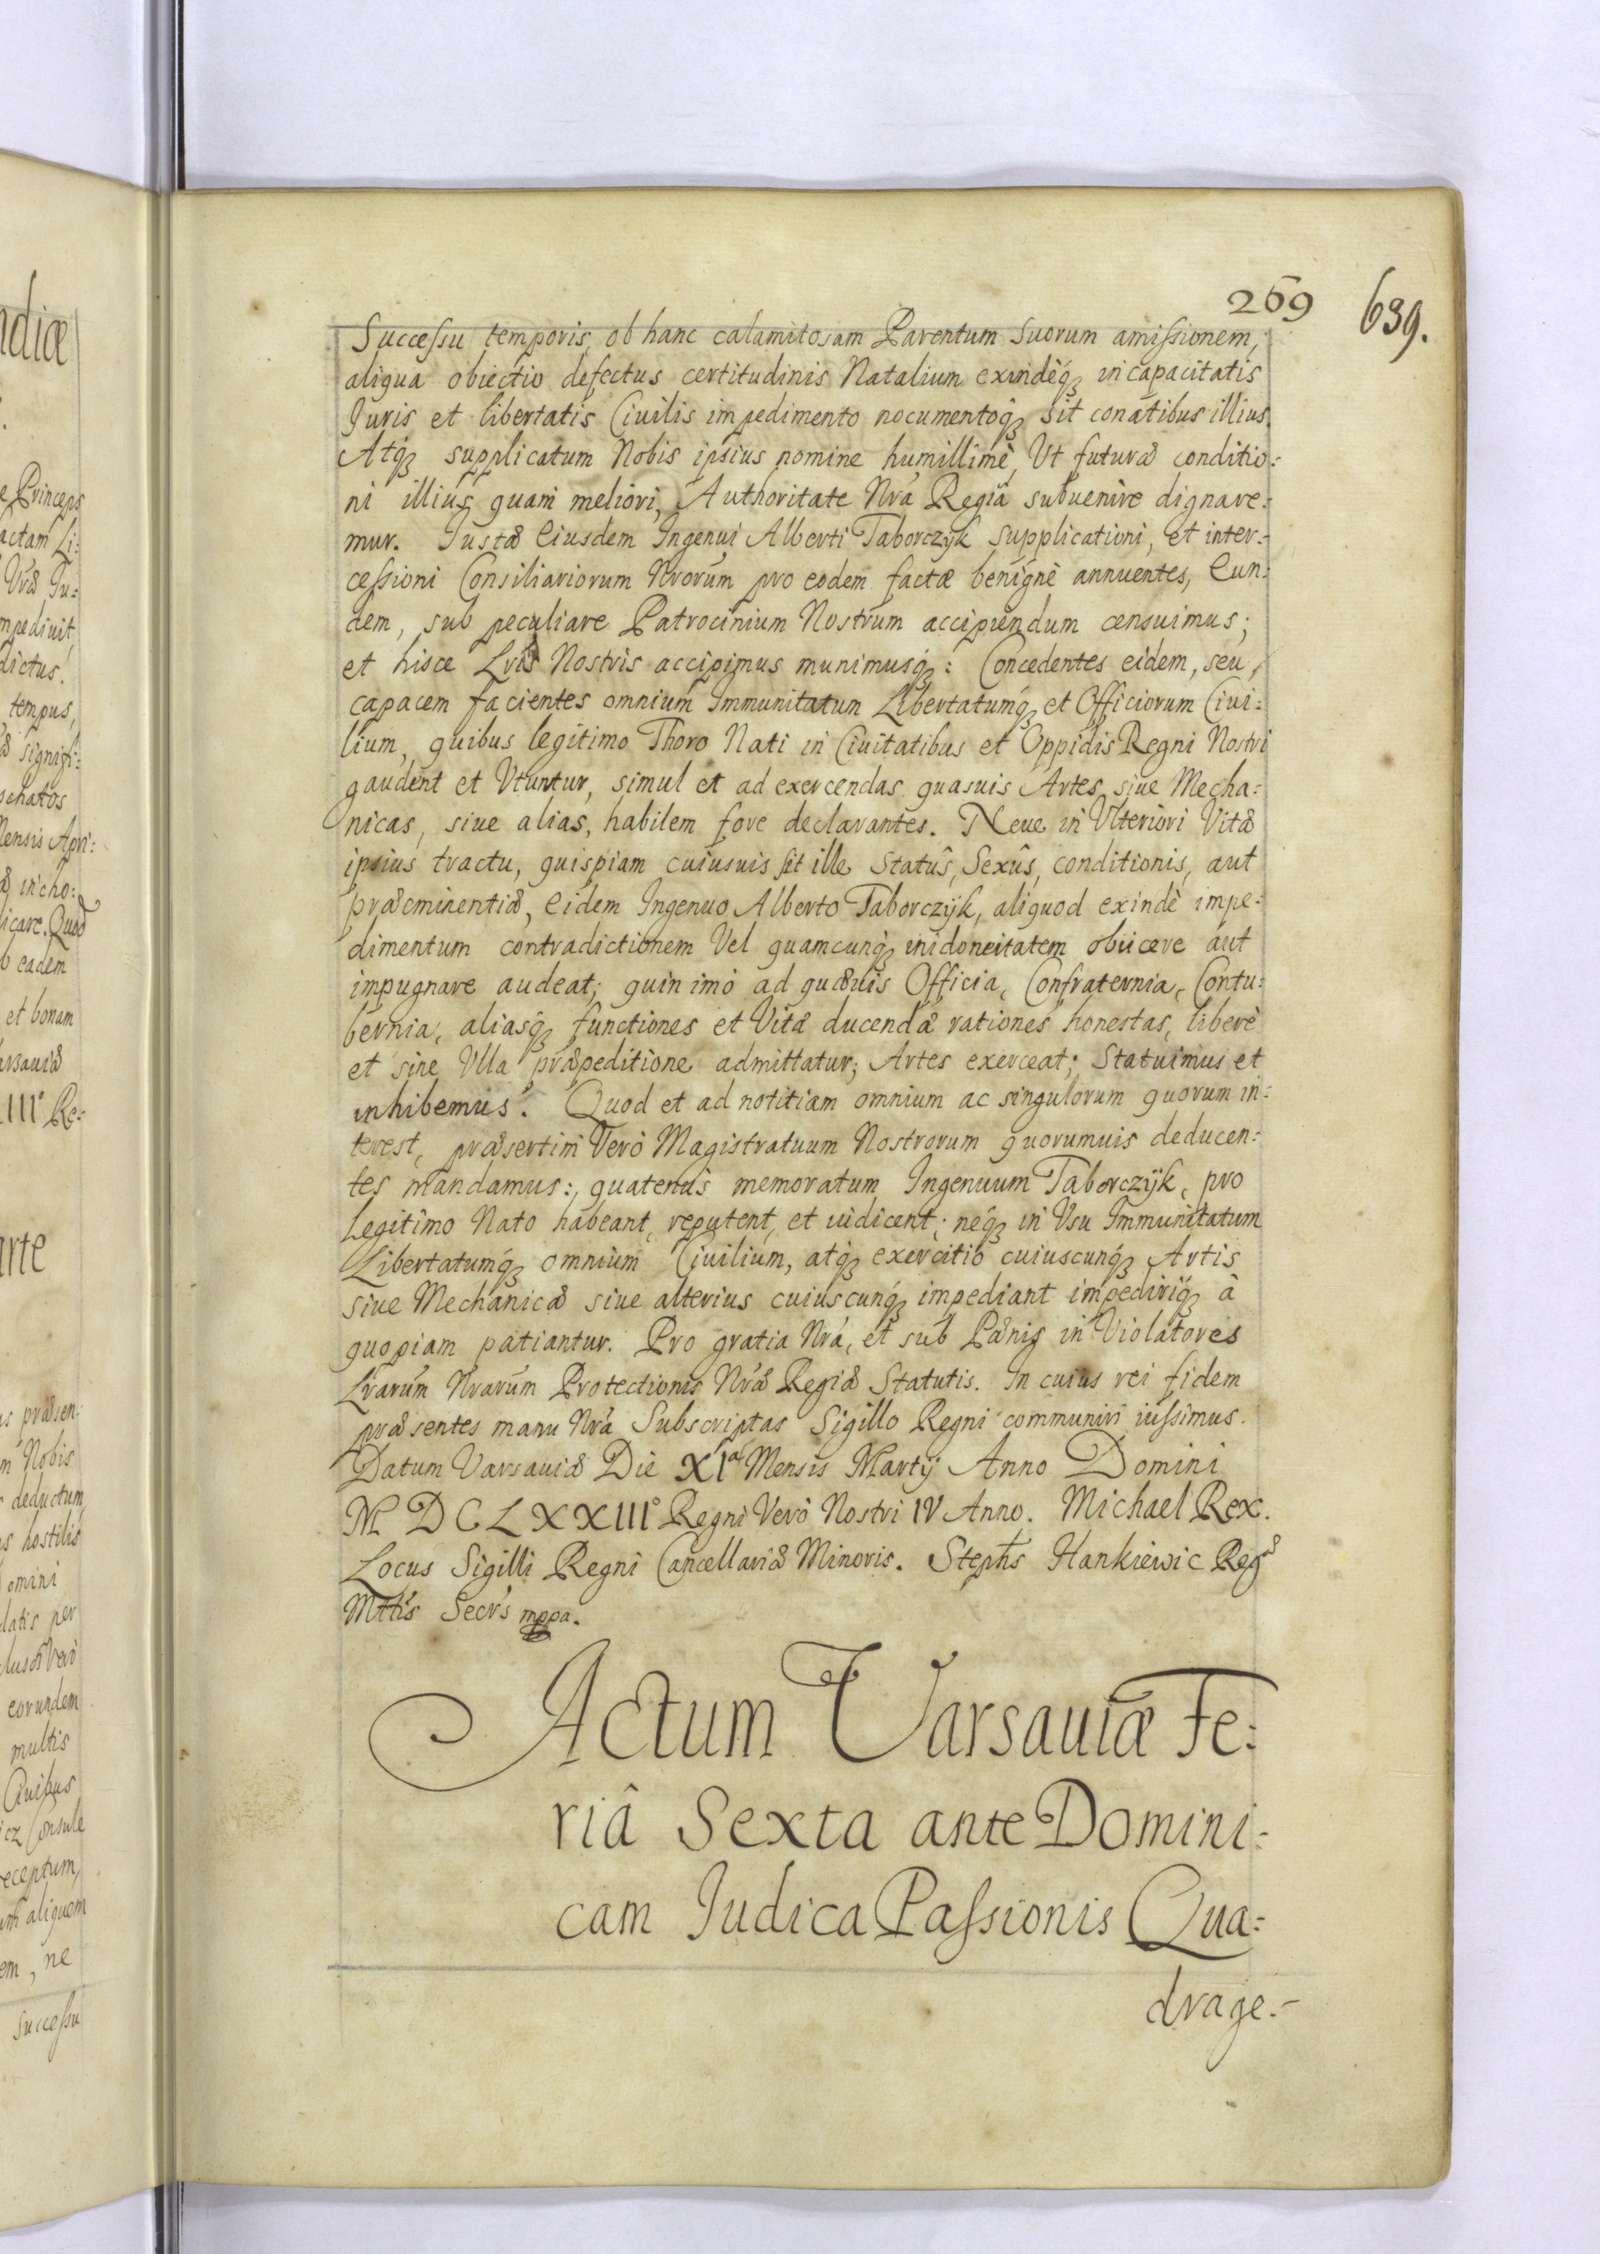 269
639.
Successu temporis, ob hanc calamitosam Parentum suorum amissionem,
aliqua obiectio defectus certitudinis Natalium exindeq́ꝫ incapacitatis
Iuris et libertatis Ciuilis impedimento nocumentoq́ꝫ sit conatibus illius.
Atq́ꝫ supplicatum Nobis ipsius nomine humillimè, Ut futuræ conditio:
ni illius quam meliori, Authoritate Nrá Regiâ subuenire dignare:
mur. Iustæ Eiusdem Ingenui Alberti Taborczÿk supplicationi, et inter:
cessioni Consiliariorum Nrorum pro eodem factæ benignè annuentes, Eun:
dem, sub peculiare Patrocinium Nostrum accipiendum censuimus;
et hisce Lris Nostris accipimus munimusq́ꝫ: Concedentes eidem, seu,
capacem facientes omnium Immunitatum Libertatumq́ꝫ et Officiorum Ciui:
lium, quibus legitimo Thoro Nati in Ciuitatibus et Oppidis Regni Nostri
gaudent et Utuntur, simul et ad exercendas quasuis Artes, siue Mecha:
nicas, siue alias, habilem fore declarantes. Neue in Ulteriori Vitæ
ipsius tractu, quispiam cuiusuis sit ille Statûs, Sexûs, conditionis, aut
præeminentiæ, Eidem Ingenuo Alberto Taborczÿk, aliquod exindè impe:
dimentum contradictionem Vel quamcunq́ꝫ inidoneitatem obiicere aut
impugnare audeat; quin imò ad quæuis Officia, Confraternia, Contu:
bernia, aliasq́ꝫ functiones et Vitæ ducendæ rationes honestas, liberè
et sine Ulla præpeditione admittatur; Artes exerceat; Statuimus et
inhibemus. Quod et ad notitiam omnium ac singulorum quorum in:
terest, præsertim Verò Magistratuum Nostrorum quorumuis deducen:
tes mandamus: quatenus memoratum Ingenuum Taborczÿk, pro
Legitimo Nato habeant, reputent, et iudicent; neq́ꝫ in Usu Immunitatum
Libertatumq́ꝫ omnium Ciuilium, atq́ꝫ exercitio cuiuscunq́ꝫ Artis
siue Mechanicæ siue alterius cuiuscunq́ꝫ impediant impediriq́ꝫ à
quopiam patiantur. Pro gratia Nrá, et sub Pænis in Violatores
Lrarum Nrarum Protectionis Nræ Regiæ Statutis. In cuius rei fidem
præsentes manu Nrá Subscriptas Sigillo Regni communiri iussimus.
Datum Varsauiæ Die XIª Mensis Martÿ Anno Domini
M D C L X X III° Regni Verò Nostri IV Anno. Michael Rex.
Locus Sigilli Regni Cancellariæ Minoris. Stephs Hankiewic Regæ
Mttis Secrs mppa.
Actum Varsauiæ Fe:
riâ Sexta ante Domini:
cam Iudica Passionis Qua:
drage: